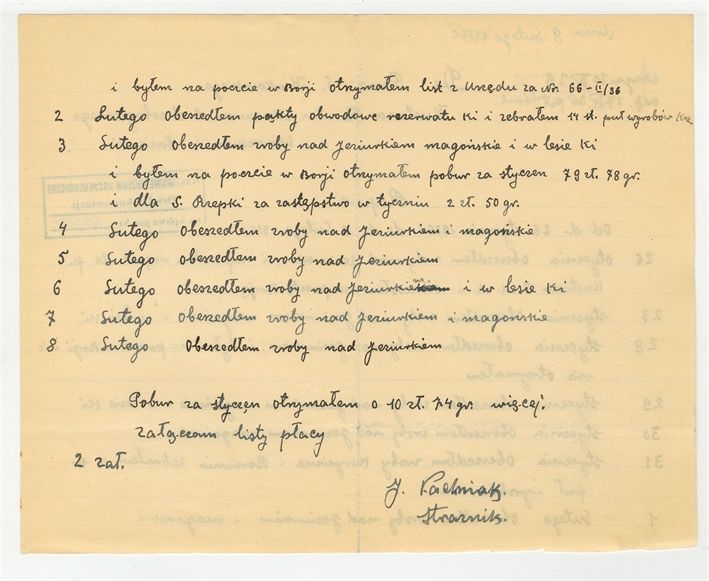 i byłem na poczcie w Borji otrzymałem list z Urzędu za Nr. 66-II/36
2 Lutego obeszedłem pękty obwodowe rezerwatu Ki i zebrałem 14 st. puł wyrobów Krz.
3. Lutego obeszedłem wroby nad Jeziurkiem magońskie i w lesie Ki
i byłem na poczcie w Borji otrzymałem pobur za styczen 79 zł. 78 gr.
i dla S. Rzepki za zastępstwo w tyczniu 2 zł. 50 gr.
4 Lutego obeszedłem wroby nad Jeziurkiem i magońskie
5 Lutego obeszedłem wroby nad Jeziurkiem
6 Lutego obeszedłem wroby nad Jeziurkiem i w lesie Ki
7 Lutego obeszedłem wroby nad Jeziurkiem i magońskie
8 Lutego Obeszedłem wroby nad Jeziurkiem
Pobur za styczen otrzymałem o 10 zł. 74 gr. więcej.
załączam listy płacy
2 zał.
J. Strażnik.